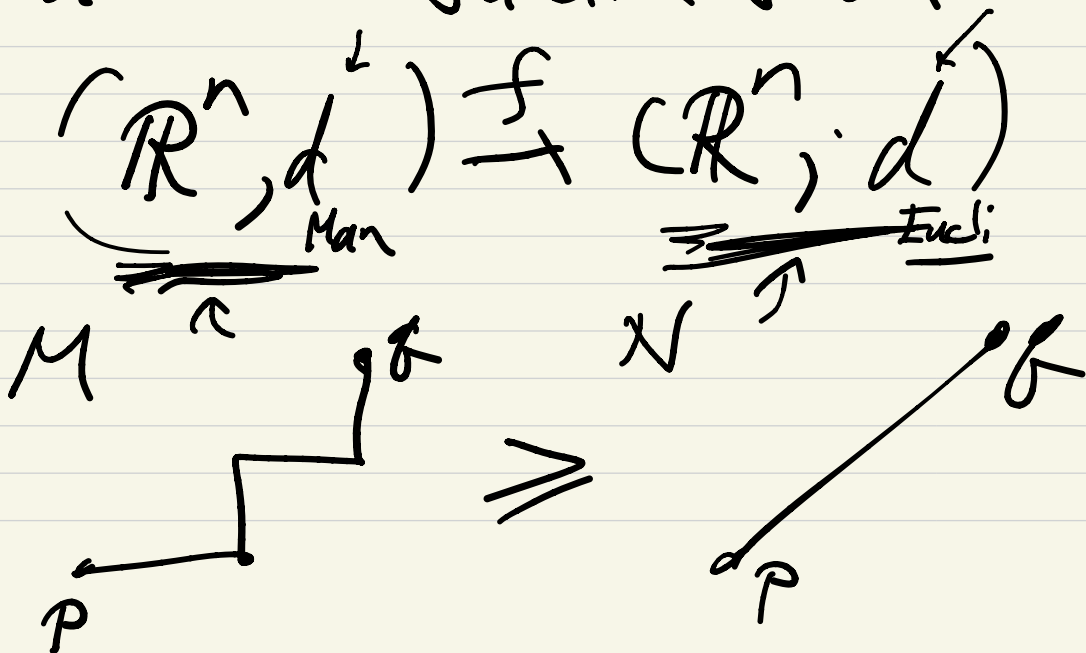 (ℝⁿ, d_Man) →f (ℝⁿ, d_Eucli)
M N
q ≥ q
P P